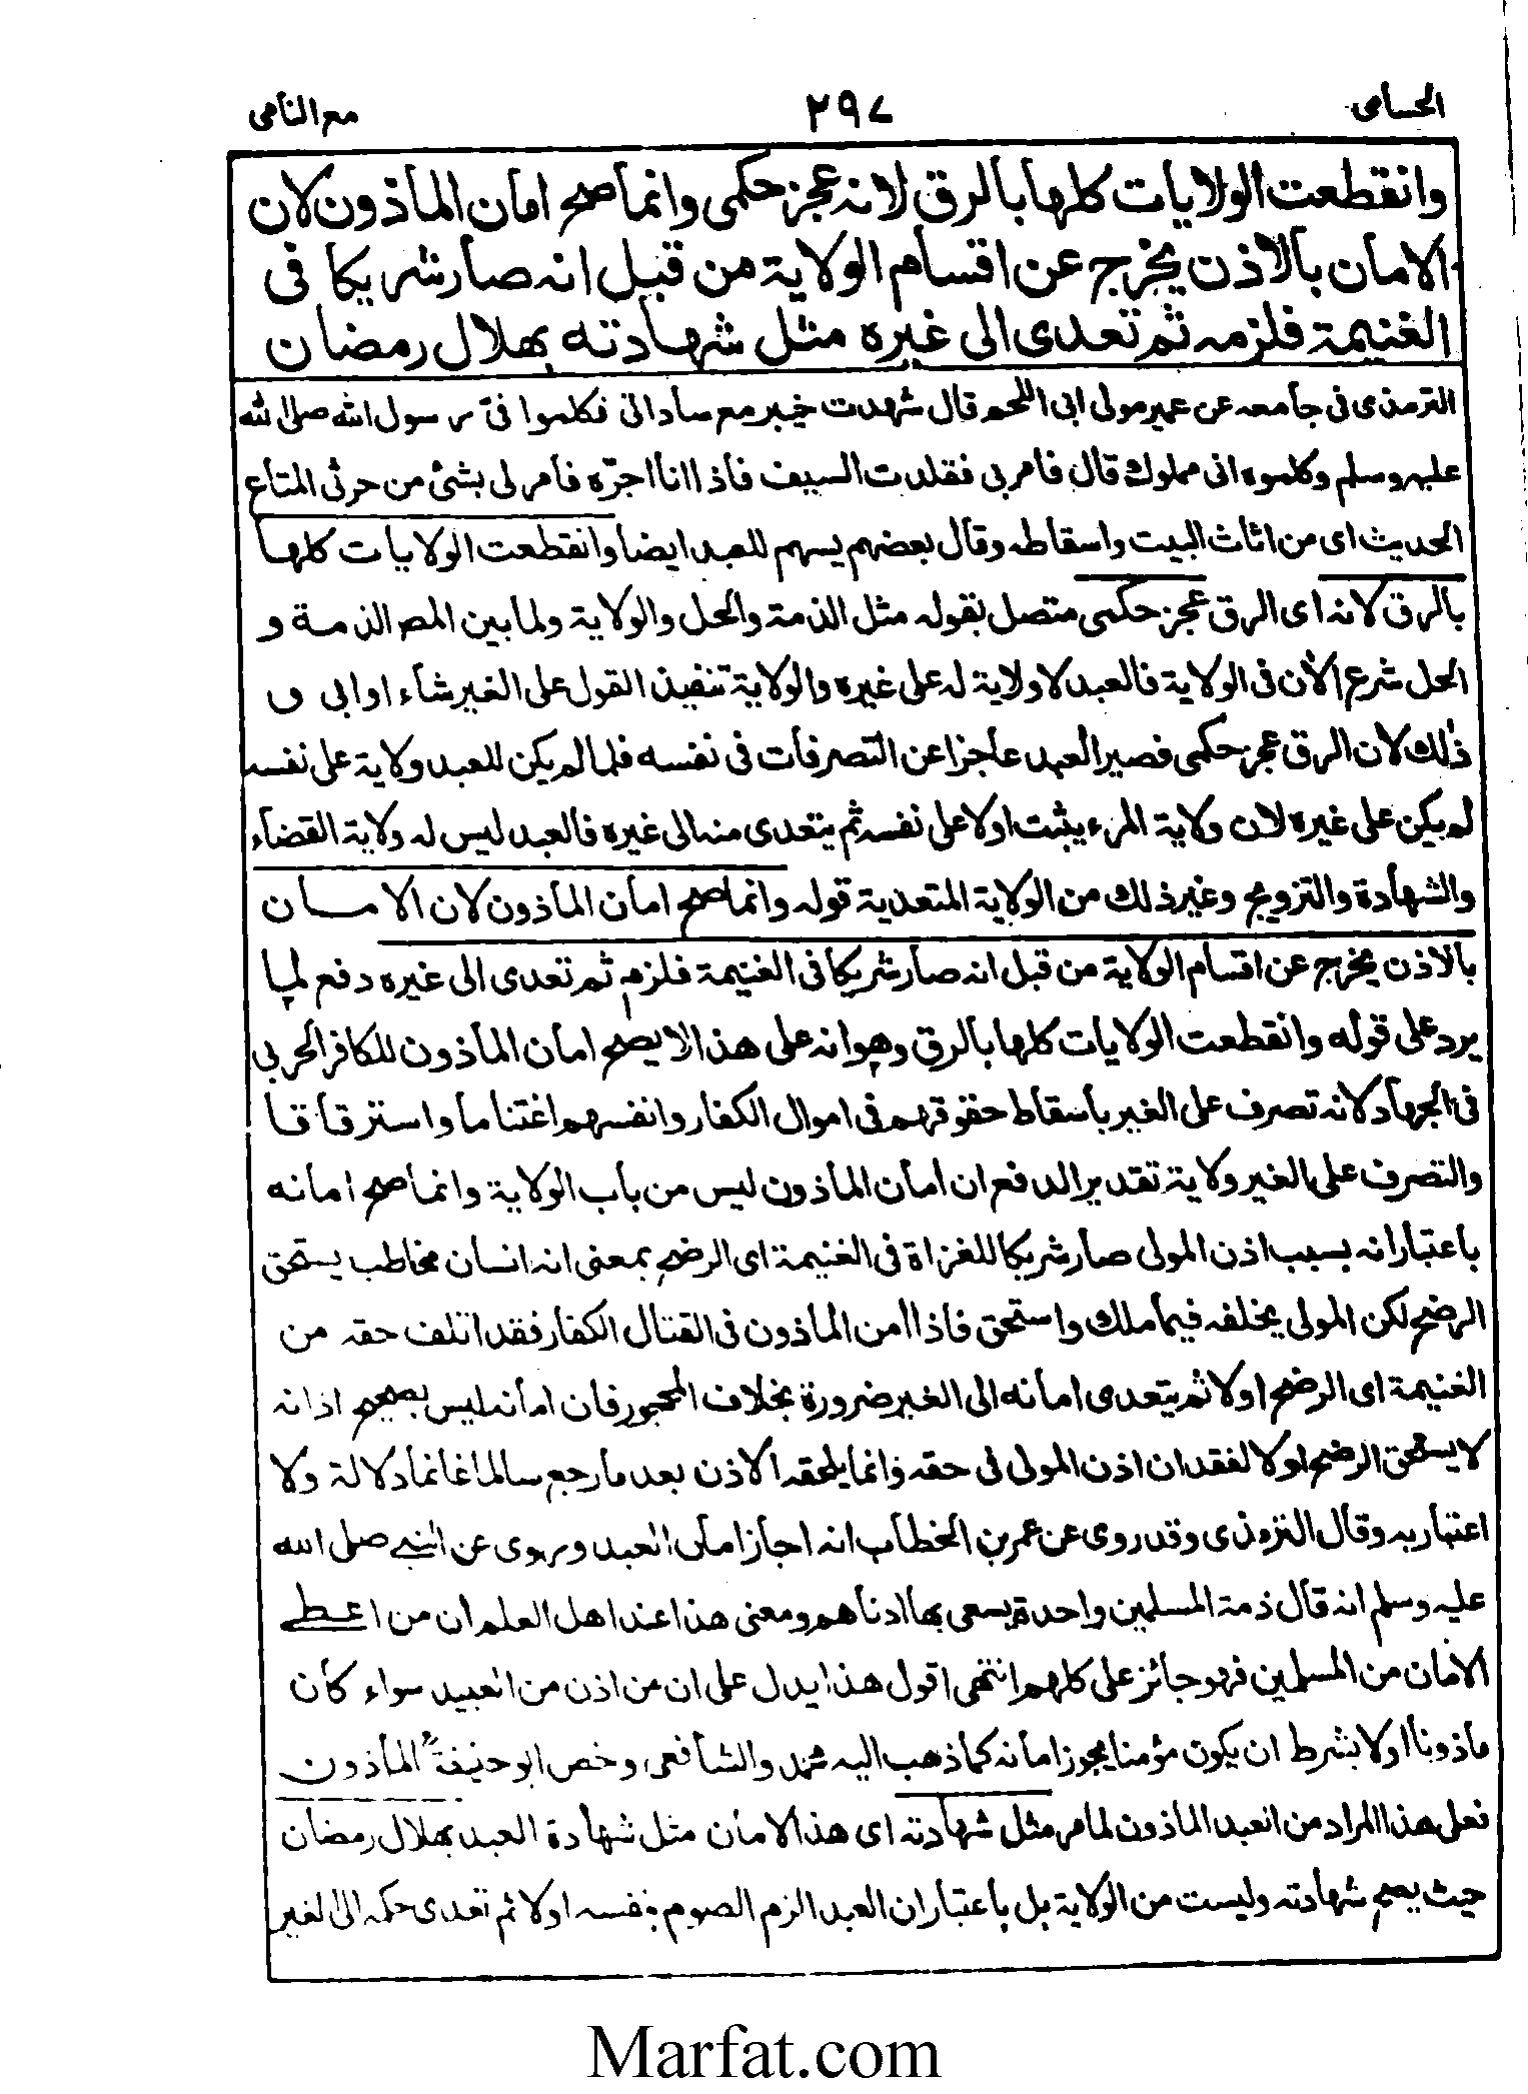 الحسامی ٢٩٧ مع النامی
وانقطعت الولایات کلها بالرق لانه عجز حکمی وانما صح امان الماذون لان
الامان بالاذن یخرج عن اقسام الولایة من قبل انه صار شریکا فی
الغنیمة فلزمه ثم تعدی الی غیره مثل شهادته بهلال رمضان
الترمذی فی جامعه عن عمیر مولی ابی اللحم قال شهدت خیبر مع ساداتی فکلموا فیّ رسول الله صلی الله
علیه وسلم وکلموه انی مملوك قال فامر بی فقلدت السیف فاذا انا اجرّه فامر لی بشئ من حرثی المتاع
الحدیث ای من اثاث البیت واسقاطه وقال بعضهم یسهم للعبد ایضا وانقطعت الولایات کلها
بالرق لانه ای الرق عجز حکمی متصل بقوله مثل الذمة والحل والولایة ولما بین المص الذمة و
الحل شرع الأن فی الولایة فالعبد لا ولایة له علی غیره والولایة تنفیذ القول علی الغیر شاء او ابی و
ذلك لان الرق عجز حکمی فصیر العبد عاجزا عن التصرفات فی نفسه فلما لم یکن للعبد ولایة علی نفسه
لم یکن علی غیره لان ولایة المرء یثبت اولا علی نفسه ثم یتعدی منه الی غیره فالعبد لیس له ولایة القضاء
والشهادة والتزویج وغیر ذلك من الولایة المتعدیة قوله وانما صح امان الماذون لان الامان
بالاذن یخرج عن اقسام الولایة من قبل انه صار شریکا فی الغنیمة فلزمه ثم تعدی الی غیره دفع لما
یرد علی قوله وانقطعت الولایات کلها بالرق وهو انه علی هذا لا یصح امان الماذون للکافر الحربی
فی الجهاد لانه تصرف علی الغیر باسقاط حقوقهم فی اموال الکفار وانفسهم اغتناما واسترقاقا
والتصرف علی الغیر ولایة تقدیر الدفع ان امان الماذون لیس من باب الولایة وانما صح امانه
باعتبار انه بسبب اذن المولی صار شریکا للغزاة فی الغنیمة ای الرضح بمعنی انه انسان مخاطب یستحق
الرضح لکن المولی یخلفه فیما ملك واستحق فاذا امن الماذون فی القتال الکفار فقد اتلف حقه من
الغنیمة ای الرضح اولا ثم یتعدی امانه الی الغیر ضرورة بخلاف المحجور فان امانه لیس بصحیح اذ انه
لا یستحق الرضح اولا لفقدان اذن المولی فی حقه وانما یلحقه الاذن بعد ما رجع سالما غانما دلالة ولا
اعتبار به وقال الترمذی وقد روی عن عمر بن الخطاب انه اجاز امان العبد ویروی عن النبی صلی الله
علیه وسلم انه قال ذمة المسلمین واحدة یسعی بها ادناهم ومعنی هذا عند اهل العلم ان من اعطی
الامان من المسلمین فهو جائز علی کلهم انتهی اقول هذا یدل علی ان من اذن من العبید سواء کان
ماذونا اولا بشرط ان یکون مؤمنا یجوز امانه کما ذهب الیه محمد والشافعی وخص ابو حنیفة الماذون
فعلی هذا المراد من العبد الماذون لما مر مثل شهادته ای هذا الامان مثل شهادة العبد بهلال رمضان
حیث یصح شهادته ولیست من الولایة بل باعتبار ان العبد الزم الصوم بنفسه اولا ثم تعدی حکمه الی الغیر
Marfat.com